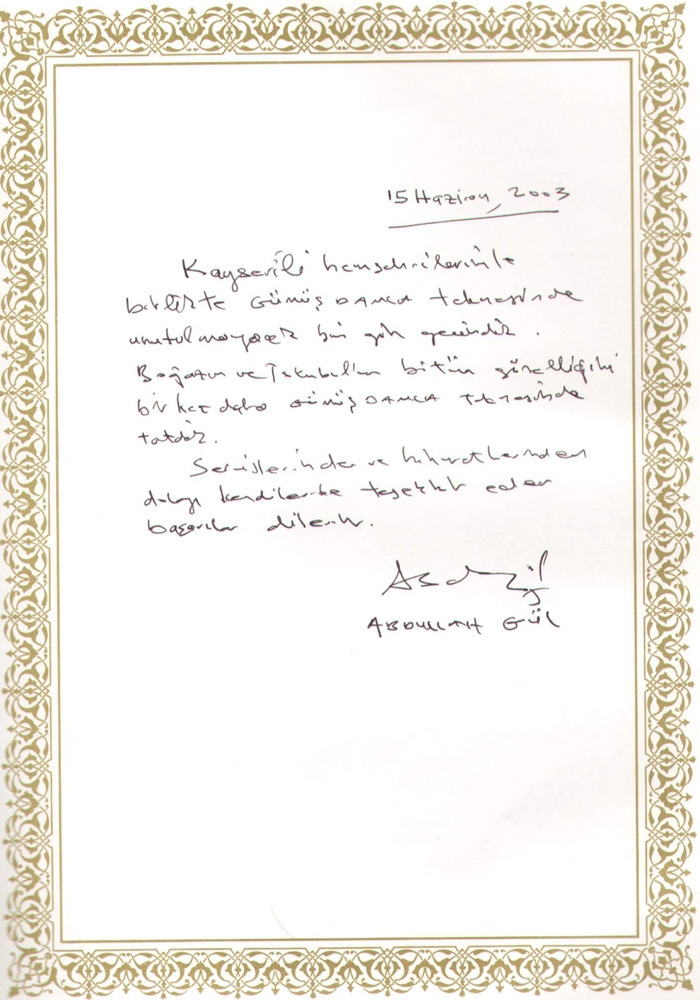 15 Haziran, 2003
Kayserili hemşehrilerimle
birlikte GÜMÜŞ DAMLA teknesinde
unutulmayacak bir gün geçirdik.
Boğazın ve İstanbul'un bütün güzelliğini
bir kez daha GÜMÜŞ DAMLA teknesinde
tatdık.
Servislerinden ve
dolayı kendilerine teşekkür eder
başarılar dilerim.
ABDULLAH GÜL